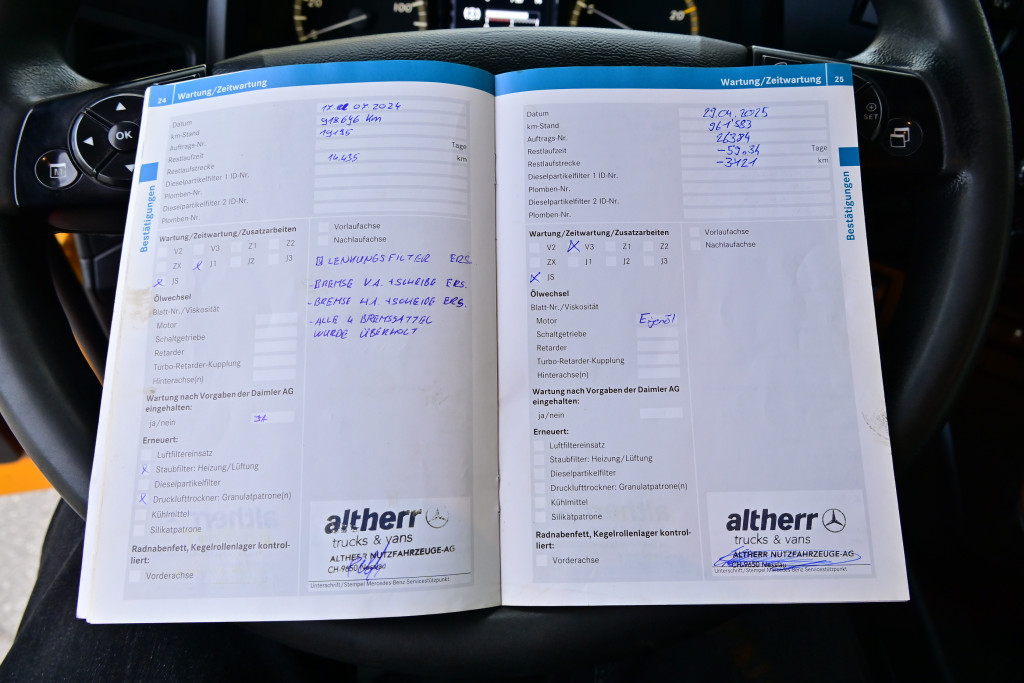 20
100
20
OK
SET
24 Wartung/Zeitwartung
Datum 17. 07 2024
km-Stand 918'696 Km
Auftrags-Nr. 19195
Restlaufzeit Tage
Restlaufstrecke 14.435 km
Dieselpartikelfilter 1 ID-Nr.
Plomben-Nr.
Dieselpartikelfilter 2 ID-Nr.
Plomben-Nr.
Bestätigungen
Wartung/Zeitwartung/Zusatzarbeiten
V2 V3 Z1 Z2
ZX X J1 J2 J3
X JS
Vorlaufachse
Nachlaufachse
LENKUNGSFILTER ERS.
- BREMSE V.A. + SCHEIBE ERS.
- BREMSE H.A. + SCHEIBE ERS.
- ALLE 4 BREMSSÄTTEL
WURDE ÜBERHOLT
Ölwechsel
Blatt-Nr./Viskosität
Motor
Schaltgetriebe
Retarder
Turbo-Retarder-Kupplung
Hinterachse(n)
Wartung nach Vorgaben der Daimler AG
eingehalten:
ja/nein JA
Erneuert:
Luftfiltereinsatz
X Staubfilter: Heizung/Lüftung
Dieselpartikelfilter
X Drucklufttrockner: Granulatpatrone(n)
Kühlmittel
Silikatpatrone
Radnabenfett, Kegelrollenlager kontrol-
liert:
Vorderachse
altherr
trucks & vans
ALTHERR NUTZFAHRZEUGE-AG
CH-9650 Nesslau
Unterschrift/Stempel Mercedes-Benz Servicestützpunkt
Wartung/Zeitwartung 25
Datum 29.04.2025
km-Stand 961'583
Auftrags-Nr. 26384
Restlaufzeit -59.34 Tage
Restlaufstrecke -3421 km
Dieselpartikelfilter 1 ID-Nr.
Plomben-Nr.
Dieselpartikelfilter 2 ID-Nr.
Plomben-Nr.
Bestätigungen
Wartung/Zeitwartung/Zusatzarbeiten
V2 X V3 Z1 Z2
ZX J1 J2 J3
X JS
Vorlaufachse
Nachlaufachse
Ölwechsel
Blatt-Nr./Viskosität
Motor Eigenöl
Schaltgetriebe
Retarder
Turbo-Retarder-Kupplung
Hinterachse(n)
Wartung nach Vorgaben der Daimler AG
eingehalten:
ja/nein
Erneuert:
Luftfiltereinsatz
Staubfilter: Heizung/Lüftung
Dieselpartikelfilter
Drucklufttrockner: Granulatpatrone(n)
Kühlmittel
Silikatpatrone
Radnabenfett, Kegelrollenlager kontrol-
liert:
Vorderachse
altherr
trucks & vans
ALTHERR NUTZFAHRZEUGE-AG
CH-9650 Nesslau
Unterschrift/Stempel Mercedes-Benz Servicestützpunkt